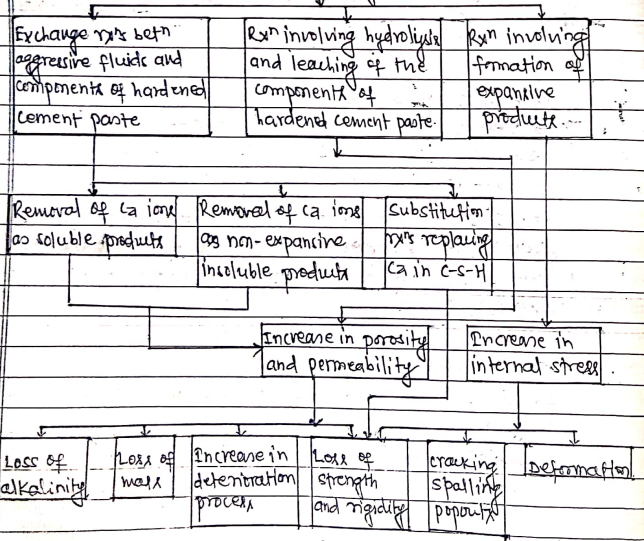 Exchange rxⁿs betⁿ
aggressive fluids and
components of hardened
cement paste
Rxⁿ involving hydrolysis
and leaching of the
components of
hardened cement paste.
Rxⁿ involving
formation of
expansive
products.
Removal of Ca ions
as soluble products
Removal of Ca ions
as non-expansive
insoluble products
Substitution
rxⁿs replacing
Ca in C-S-H
Increase in porosity
and permeability
Increase in
internal stress
Loss of
alkalinity
Loss of
mass
Increase in
deterioration
process
Loss of
strength
and rigidity
cracking
spalling
popouts
Deformation